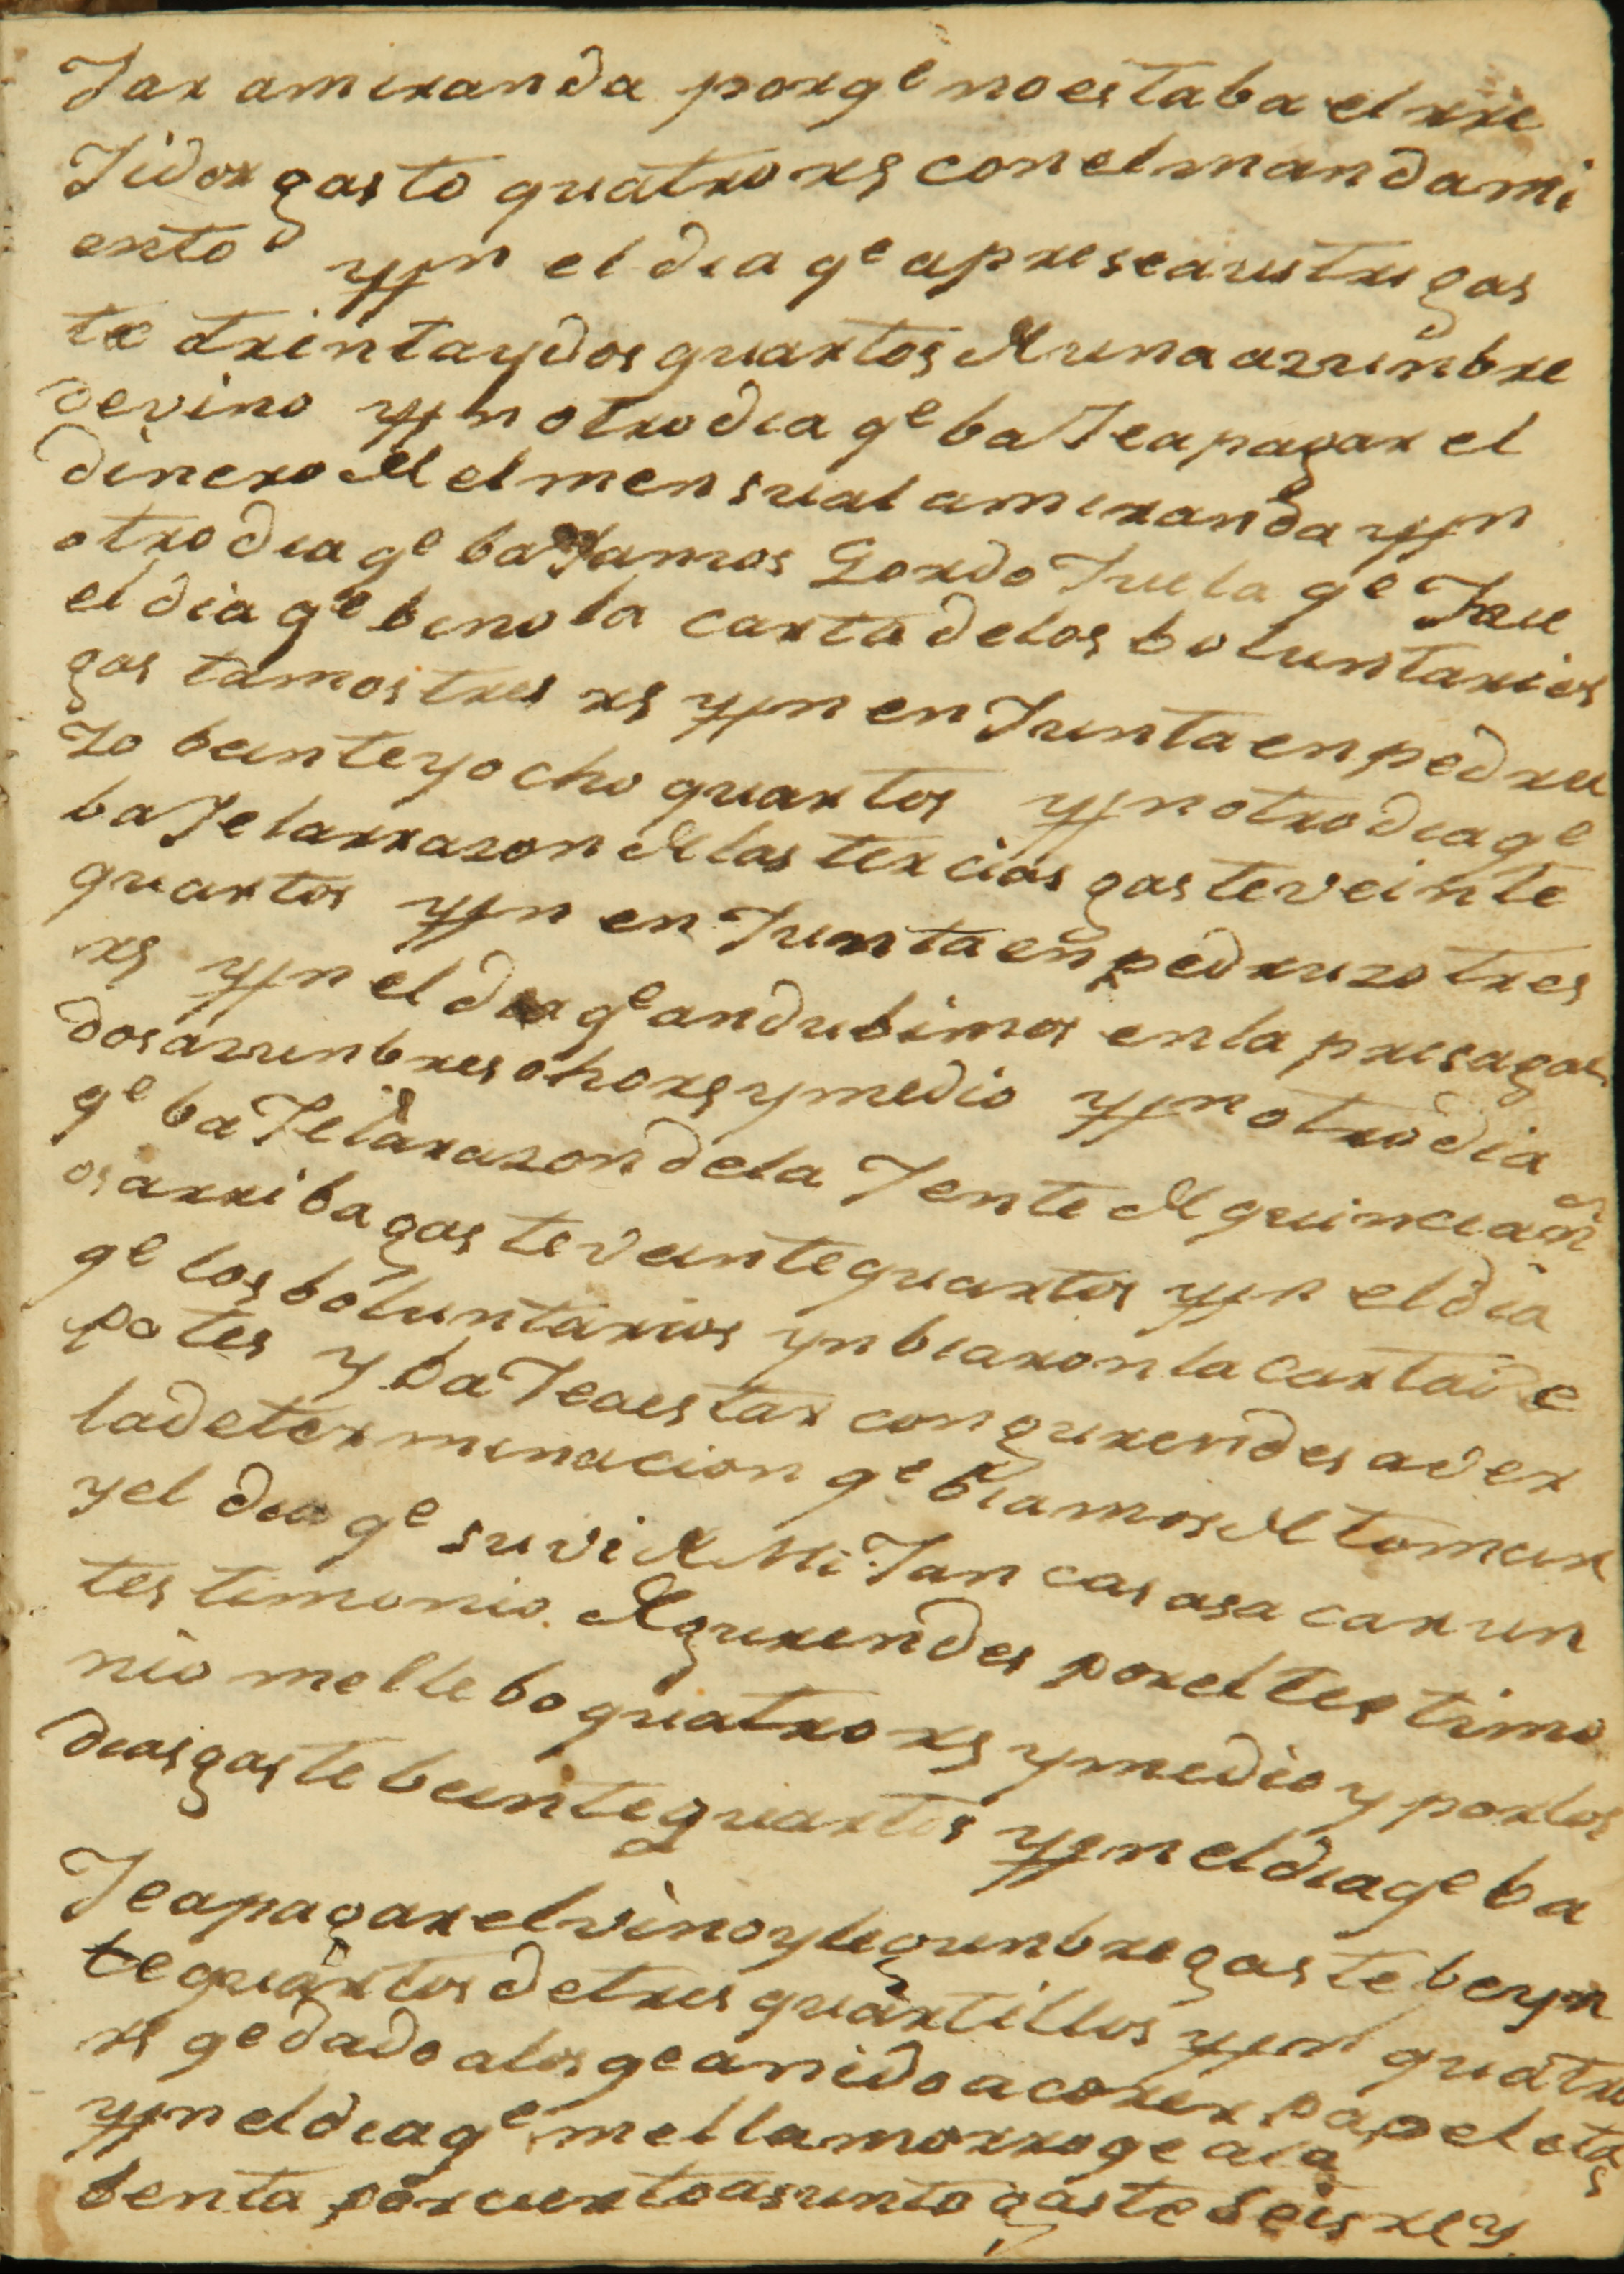 Jar a miranda porqe no estaba el rre
Jidor gasto quatro rs con el mandami
ento ytn el dia qe apreseaustru gas
te treinta y dos quartos de una azunbre
de vino ytn otro dia qe baJe a pagar el
dinero de el mensual a miranda ytn
otro dia qe baJamos Gordo Juela qe Fue
el dia qe bino la carta de los boluntarios
gastamos tres rs ytn en Junta en pedru
zo beinte y ocho quartos ytn otro dia qe
baJe la rrazon de las tercias gaste veinte
quartos ytn en Junta en pedruzo tres
rs ytn el dia qe andubimos en la presa gas
dos azunbres ocho rs y medio ytn otro dia
qe baJe la razon de la Jente de quince añ
os arriba gaste veinte quartos ytn el dia
qe los boluntarios ynbiaron la carta de
potes y baJe a estar con gurendes a ver
la determinacion qe biamos de tomar
y el dia qe suvi de MiJancas a sacar un
testimonio de gurendes por el testimo
nio me llebo quatro rs y medio y por los
dias gaste beinte quartos ytn el dia qe ba
Je a pagar el vino y legunbre gaste beyn
te quartos de tres quartillos ytn quatro
rs qe dado a los qe an ido a corer papeletas
ytn el dia qe me llamo rroqe a la
benta por cierto asunto gaste seis rs y